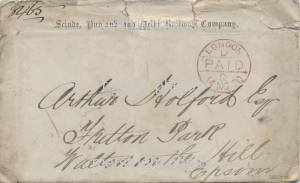 Scinde, Punjaub and Delhi Railway Company.
LONDON
PAID
Arthur Holford Esq
Park
Walton on the Hill
Epsom